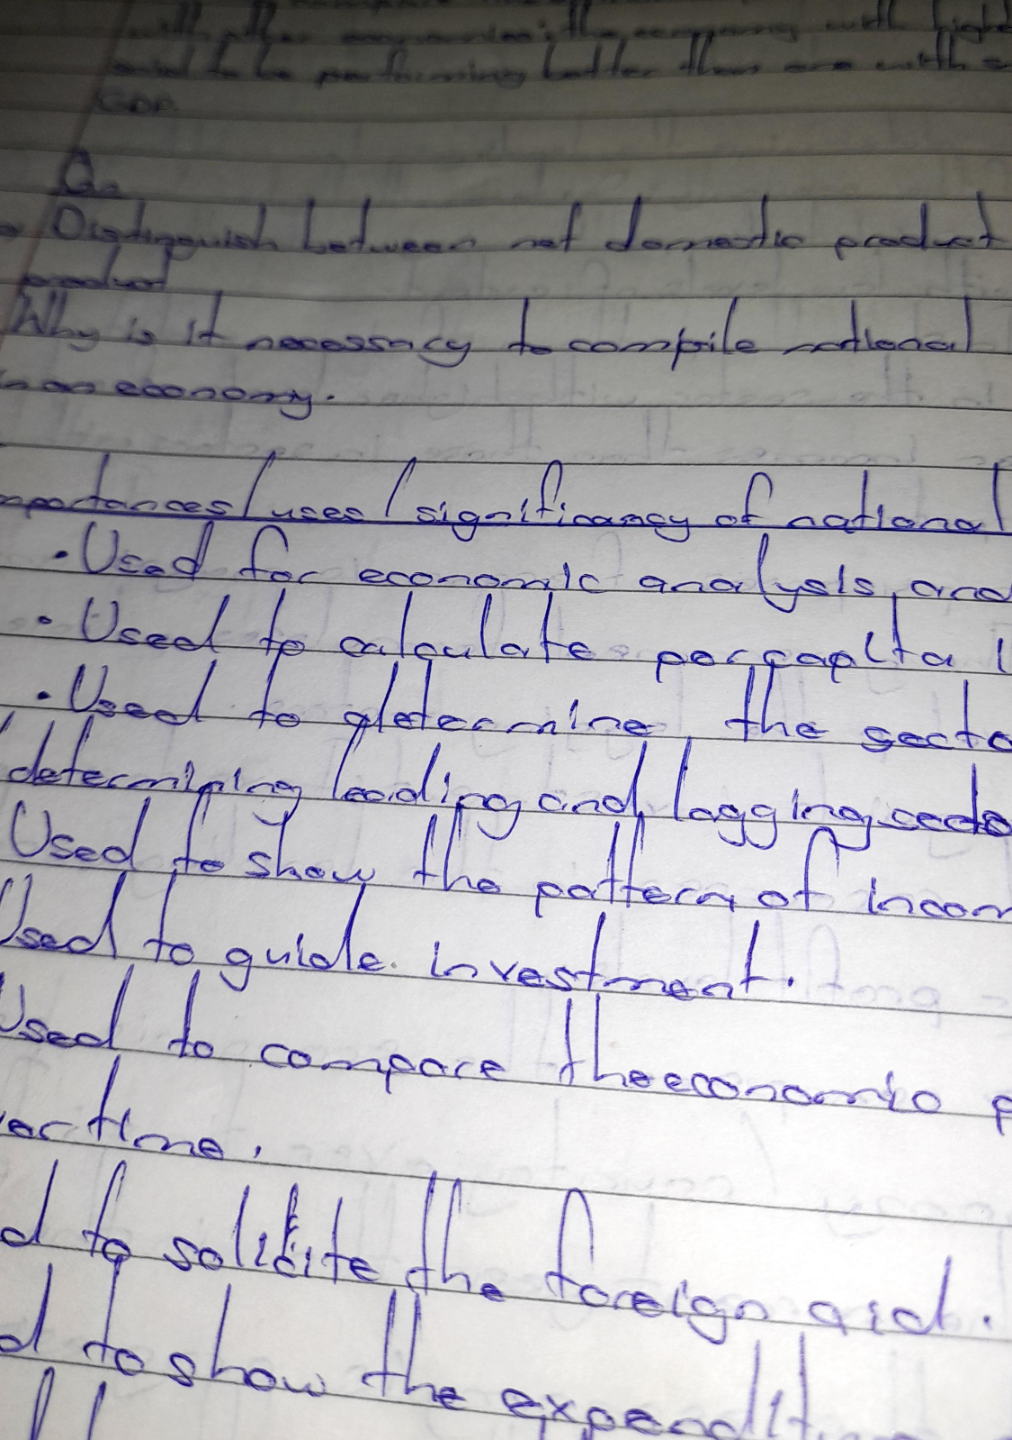 with other companies, the company with high
said to be performing better than one with a
GDP.
Qn
Distinguish between net domestic product
product
Why is it necessary to compile national
in an economy.
mportances/uses/significancy of national
• Used for economic analysis and
• Used to calculate percapita i
• Used to determine the secto
determining leading and lagging secto
Used to show the pattern of incom
Used to guide investment.
Used to compare the economic p
er time.
d to solicite the foreign aid.
d to show the expendit